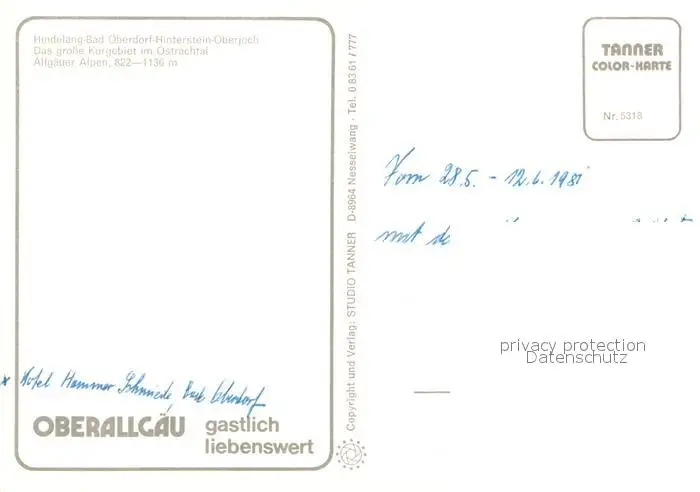 Hindelang-Bad Oberdorf-Hinterstein-Oberjoch
Das große Kurgebiet im Ostrachtal
Allgäuer Alpen, 822—1136 m
x Hotel Hammer Schmiede, Bad Oberdorf
OBERALLGÄU gastlich
liebenswert
Copyright und Verlag: STUDIO TANNER D-8964 Nesselwang · Tel. 0 83 61 / 777
TANNER
COLOR-KARTE
Nr. 5318
Vom 28.5. - 12.6.1981
mit de
privacy protection
Datenschutz